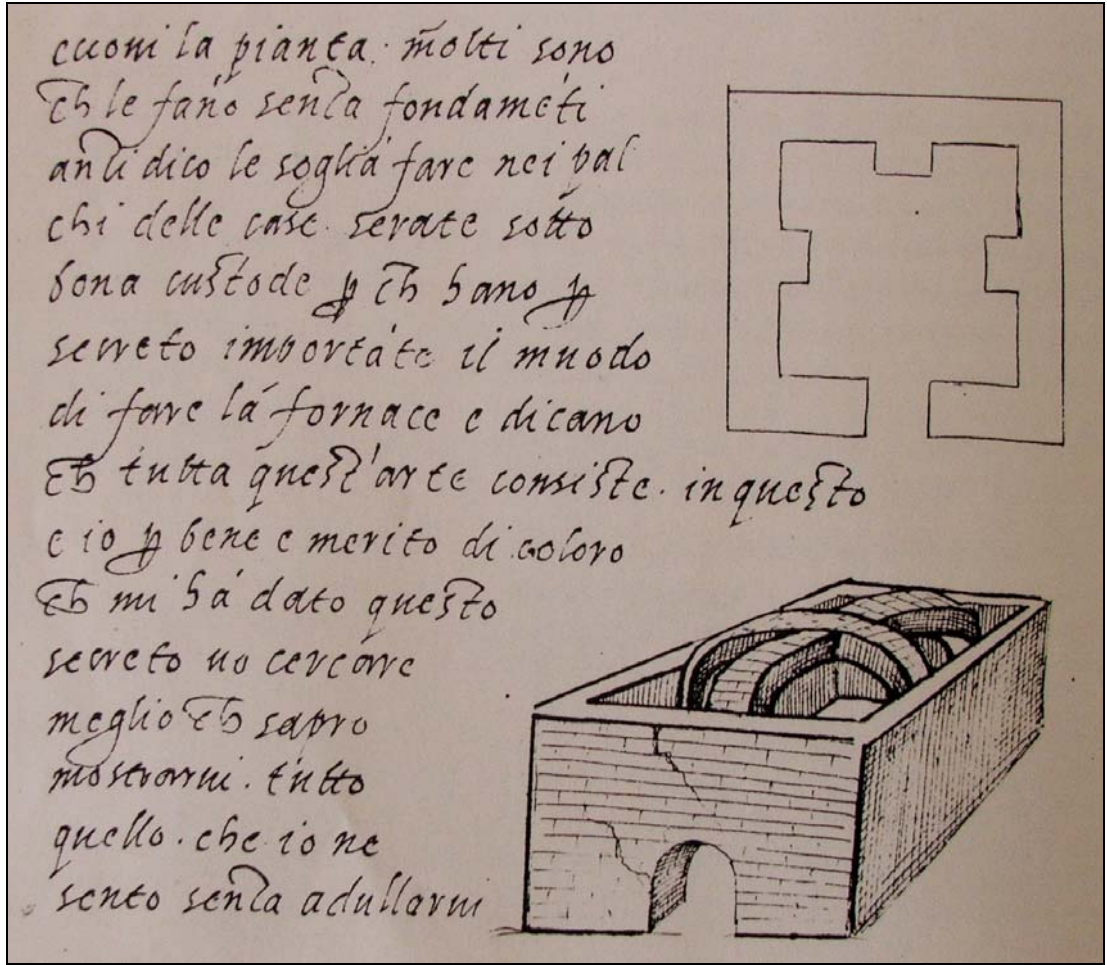 cuoni la pianta. m̃olti sono
ch̃ le fan̄o senza fondamēti
anzi dico le soglia fare nei pal
chi delle case. serate sotto
bona custode ꝑ ch̃ hano ꝑ
secreto importāte il muodo
di fare la fornace e dicano
ch̃ tutta quest'arte consiste. in questo
e io ꝑ bene e merito di coloro
ch̃ mi há dato questo
secreto uo cercare
meglio ch̃ sapro
mostrarui. tutto
quello. che io ne
sento senza adullarui